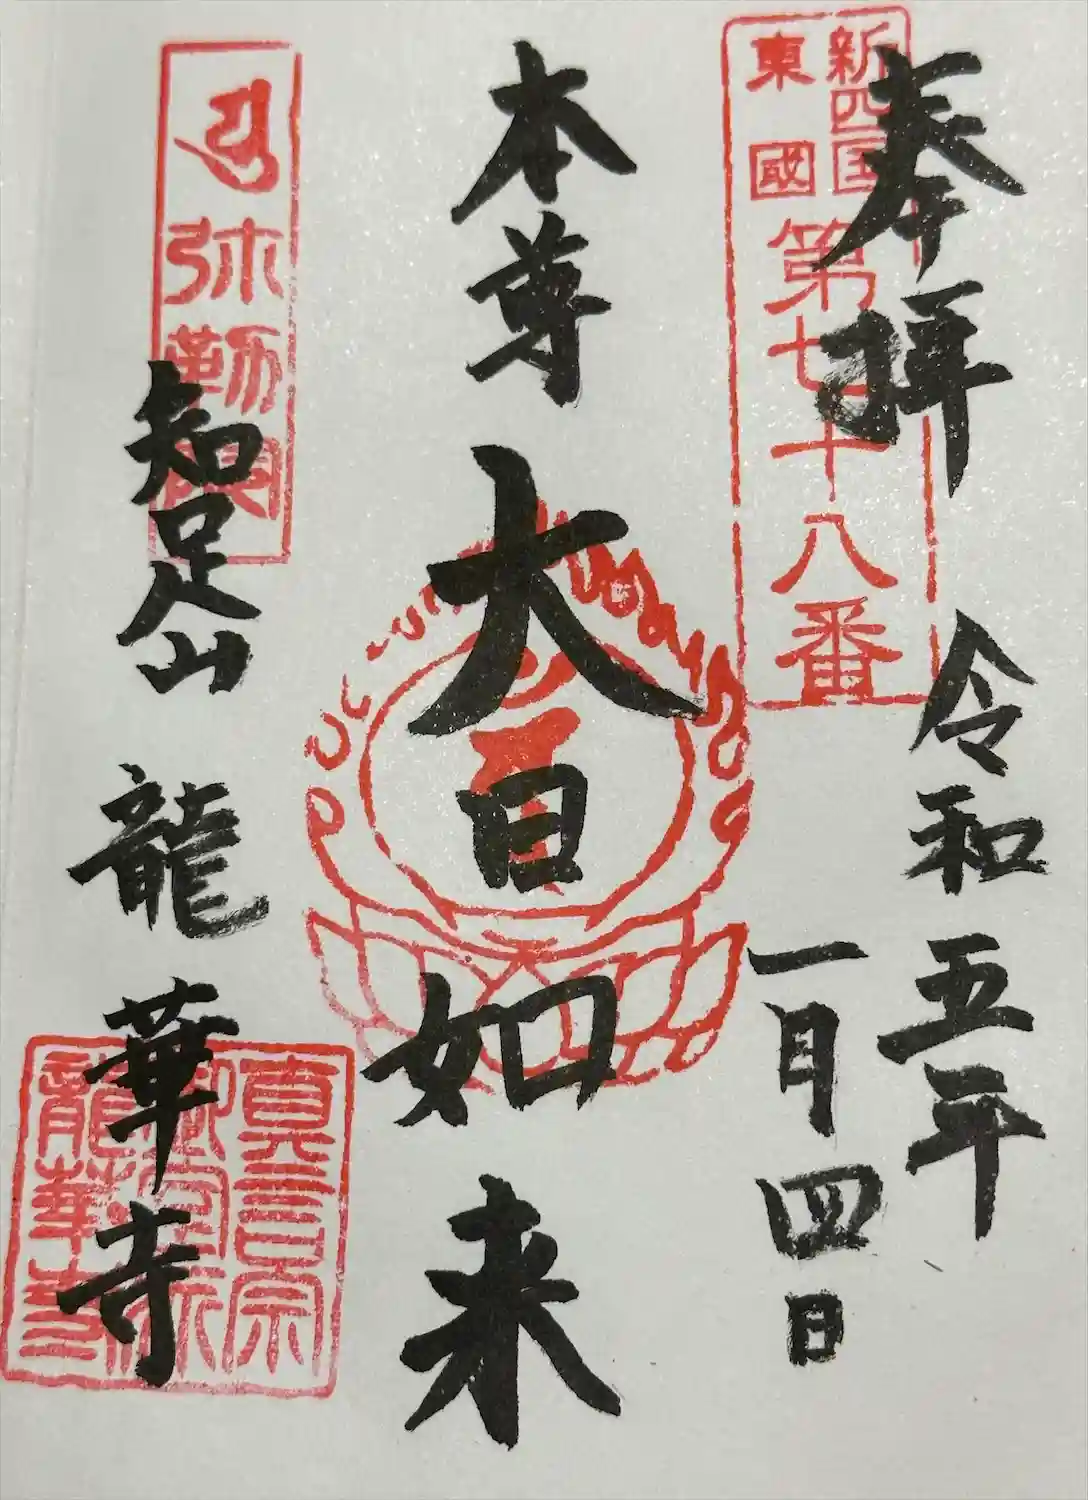 奉拝
新四国
東國
第七十八番
令和五年
一月四日
本尊
大日如来
弥勒
知足山
龍華寺
真言宗
御室派
龍華寺